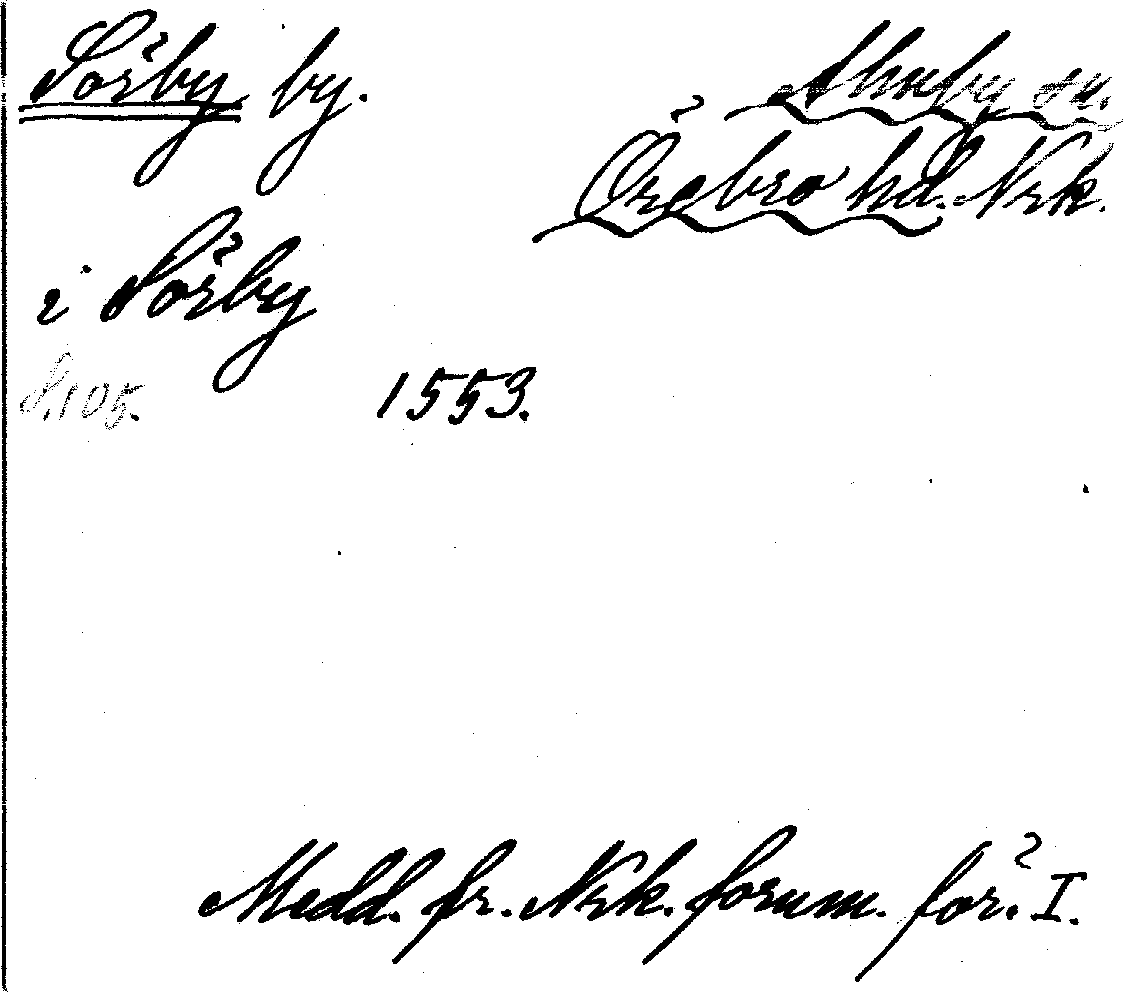 Sörby by.
Almby sn.
Örebro hd. Nrk.
i Sörby
S. 105. 1553.
Medd. fr. Nrk. fornm. för. I.